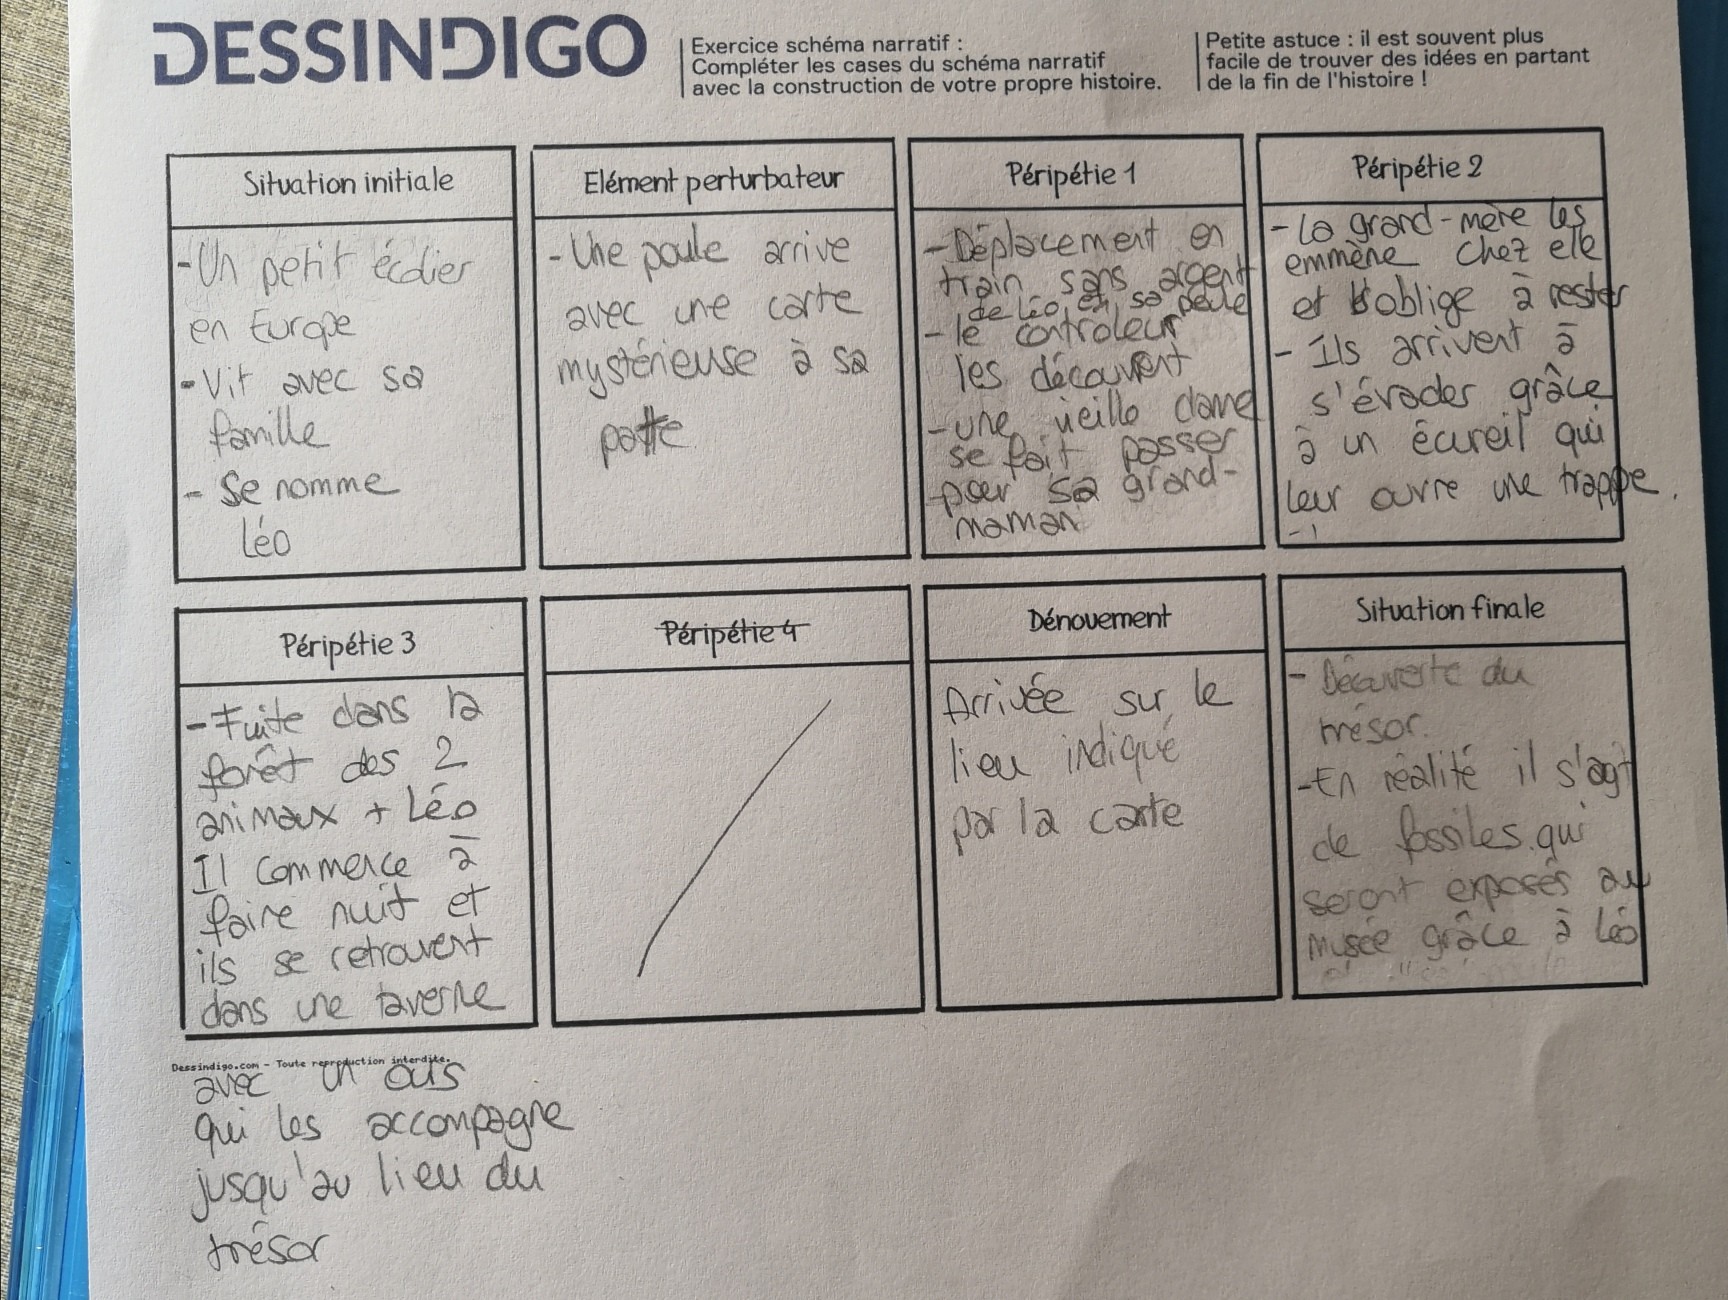 DESSINDIGO
Exercice schéma narratif :
Compléter les cases du schéma narratif
avec la construction de votre propre histoire.
Petite astuce : il est souvent plus
facile de trouver des idées en partant
de la fin de l'histoire !
Situation initiale
- Un petit écolier
en Europe
- Vit avec sa
famille
- Se nomme
Léo
Elément perturbateur
- Une poule arrive
avec une carte
mystérieuse à sa
patte
Péripétie 1
- Déplacement en
train sans argent
de Léo et sa poule
- le contrôleur
les découvrent
- une vieille dame
se fait passer
pour sa grand-
maman
Péripétie 2
- La grand-mère les
emmène chez elle
et l'oblige à rester
- Ils arrivent à
s'évader grâce
à un écureil qui
leur ouvre une trappe.
Péripétie 3
- Fuite dans la
forêt des 2
animaux + Léo
Il commence à
faire nuit et
ils se retrouvent
dans une taverne
Péripétie 4
Dénouement
Arrivée sur le
lieu indiqué
par la carte
Situation finale
- Découverte du
trésor.
- En réalité il s'agit
de fossiles qui
seront exposés au
musée grâce à Léo
Dessindigo.com - Toute reproduction interdite.
avec un ours
qui les accompagne
jusqu'au lieu du
trésor